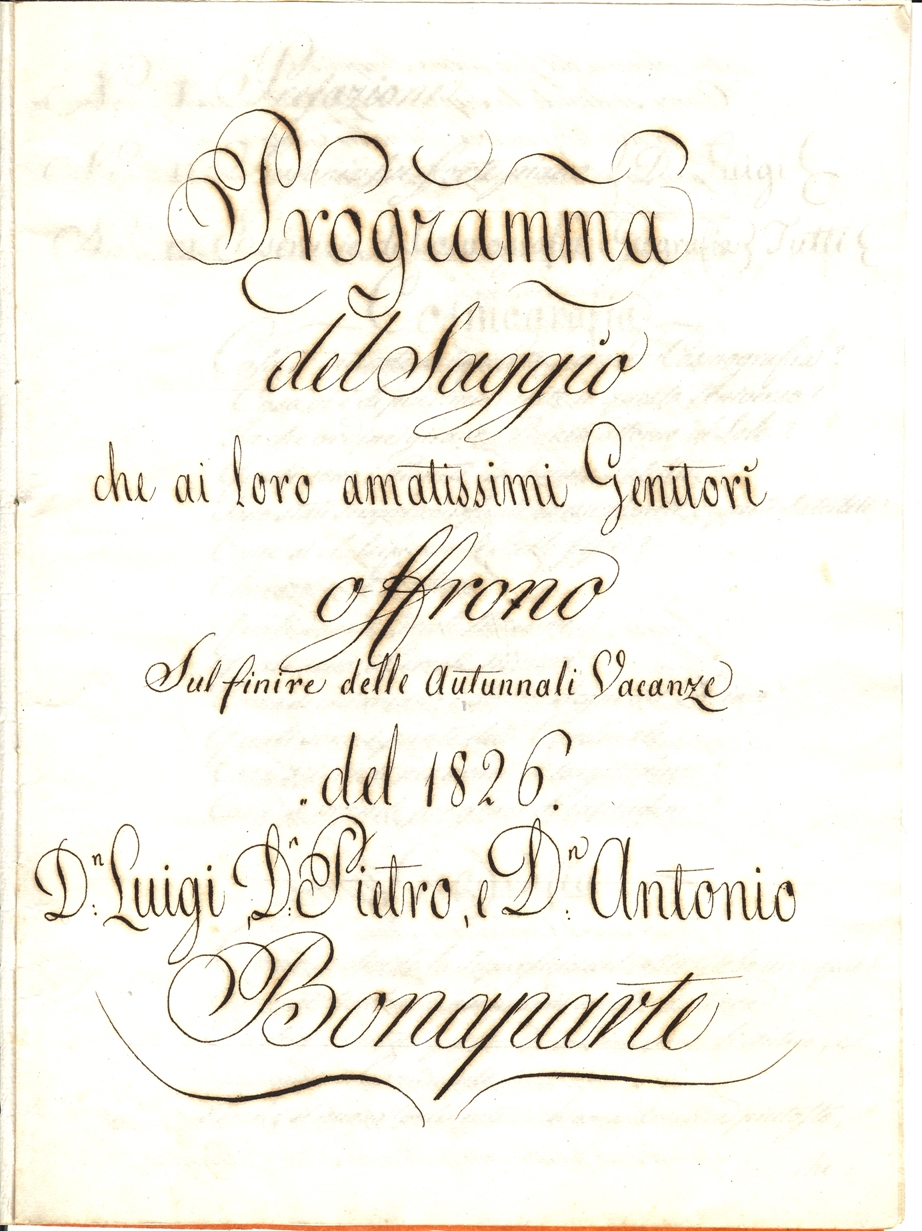 Programma
del Saggio
che ai loro amatissimi Genitori
offrono
Sul finire delle Autunnali Vacanze
del 1826.
D.n Luigi, D.n Pietro, e D.n Antonio
Bonaparte